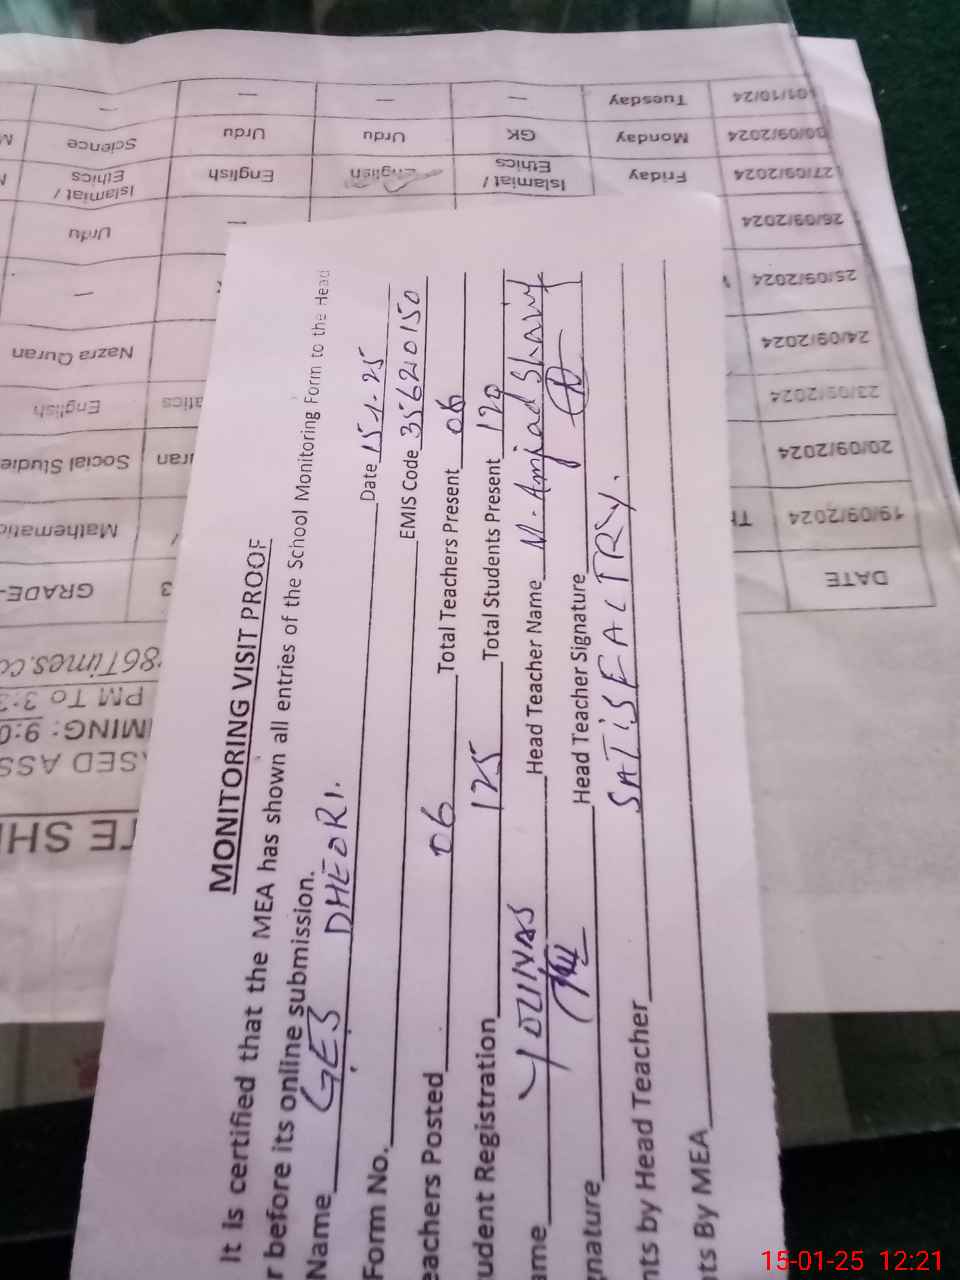 MONITORING VISIT PROOF
It is certified that the MEA has shown all entries of the School Monitoring Form to the Head
r before its online submission.
Name GES DHEORI. Date 15-1-25
Form No. EMIS Code 35620150
eachers Posted 06 Total Teachers Present 06
udent Registration 125 Total Students Present 120
ame Head Teacher Name M. Amjad
gnature Head Teacher Signature
nts by Head Teacher
nts By MEA
TE SH
SED ASS
MING: 9:0
PM To 3:3
86Times.co
DATE GRADE- 3
19/09/2024 Th Mathematic
20/09/2024 uran Social Studie
23/09/2024 atics English
24/09/2024 Nazra Quran
25/09/2024 —
26/09/2024 — Urdu
27/09/2024 Friday Islamiat / Ethics English English Islamiat / Ethics
30/09/2024 Monday GK Urdu Urdu Science
01/10/24 Tuesday — — — —
15-01-25 12:21